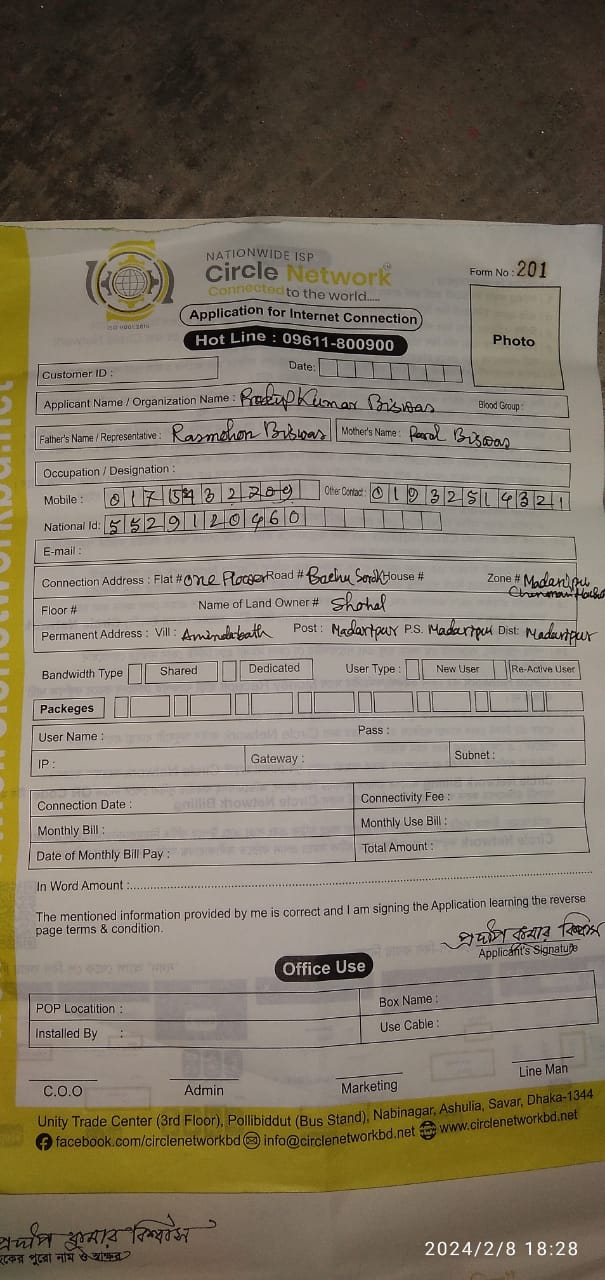 NATIONWIDE ISP
Circle Network
Connected to the world.....
ISO 9001:2015
Form No : 201
Application for Internet Connection
Hot Line : 09611-800900
Photo
Customer ID :
Date:
Applicant Name / Organization Name : Prodip Kumar Biswas Blood Group :
Father's Name / Representative : Rasmohon Biswas Mother's Name : Parol Biswas
Occupation / Designation :
Mobile : 0175432709 Other Contact : 01932514321
National Id: 5529120460
E-mail :
Connection Address : Flat # one Floor Road # House # Zone # Madaripu
Floor # Name of Land Owner # Shohel
Permanent Address : Vill : Post : Madaripur P.S. Madaripur Dist: Madaripur
Bandwidth Type Shared Dedicated User Type : New User Re-Active User
Packeges
User Name : Pass :
IP : Gateway : Subnet :
Connection Date : Connectivity Fee :
Monthly Bill : Monthly Use Bill :
Date of Monthly Bill Pay : Total Amount :
In Word Amount :
The mentioned information provided by me is correct and I am signing the Application learning the reverse
page terms & condition.
প্রদীপ কুমার বিশ্বাস
Applicant's Signature
Office Use
POP Locatition : Box Name :
Installed By : Use Cable :
C.O.O Admin Marketing Line Man
Unity Trade Center (3rd Floor), Pollibiddut (Bus Stand), Nabinagar, Ashulia, Savar, Dhaka-1344
facebook.com/circlenetworkbd info@circlenetworkbd.net www.circlenetworkbd.net
প্রদীপ কুমার বিশ্বাস
পুরো নাম ও স্বাক্ষর
2024/2/8 18:28